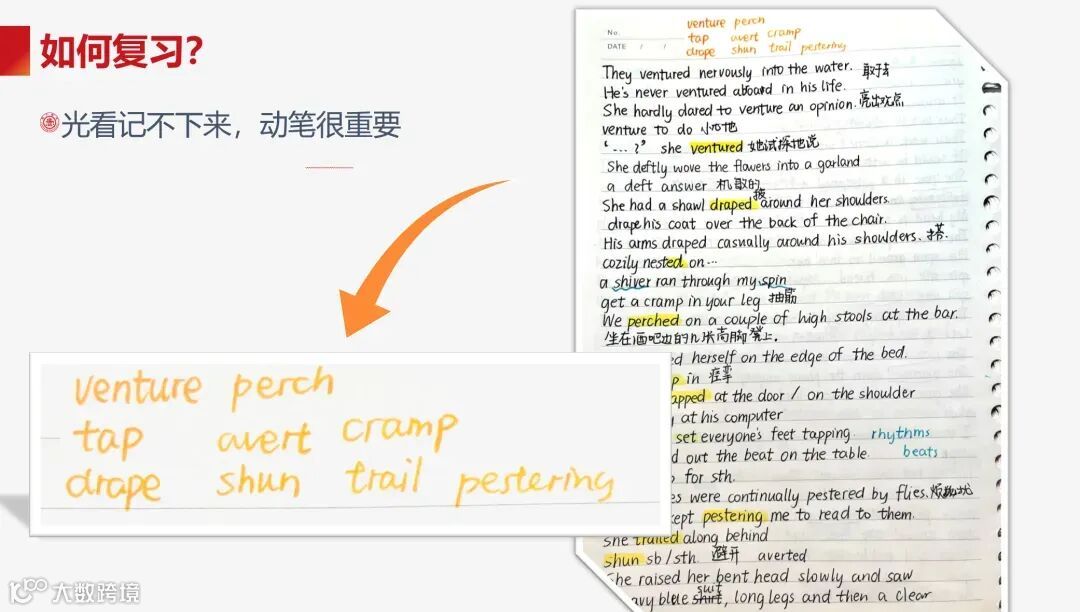 如何复习?
光看记不下来，动笔很重要
venture perch
tap avert cramp
drape shun trail pestering
No.
DATE / /
venture perch
tap avert cramp
drape shun trail pestering
They ventured nervously into the water. 敢于去
He's never ventured aboard in his life.
She hardly dared to venture an opinion. 亮出观点
venture to do 小心地
"....?" she ventured 她试探地说
She deftly wove the flowers into a garland
a deft answer 机敏的
She had a shawl draped around her shoulders. 披
drape his coat over the back of the chair.
His arms draped casually around his shoulders. 搭.
cozily nested on...
a shiver ran through my spin
get a cramp in your leg 抽筋
We perched on a couple of high stools at the bar.
坐在酒吧边的几张高脚凳上.
herself on the edge of the bed.
in 痉挛
apped at the door / on the shoulder
at his computer
set everyone's feet tapping. rhythms
out the beat on the table. beats
for sth.
es were continually pestered by flies.
ept pestering me to read to them.
She trailed along behind
shun sb/sth. 避开 averted
She raised her bent head slowly and saw
avy blue suit, long legs and then a clear
大数跨境